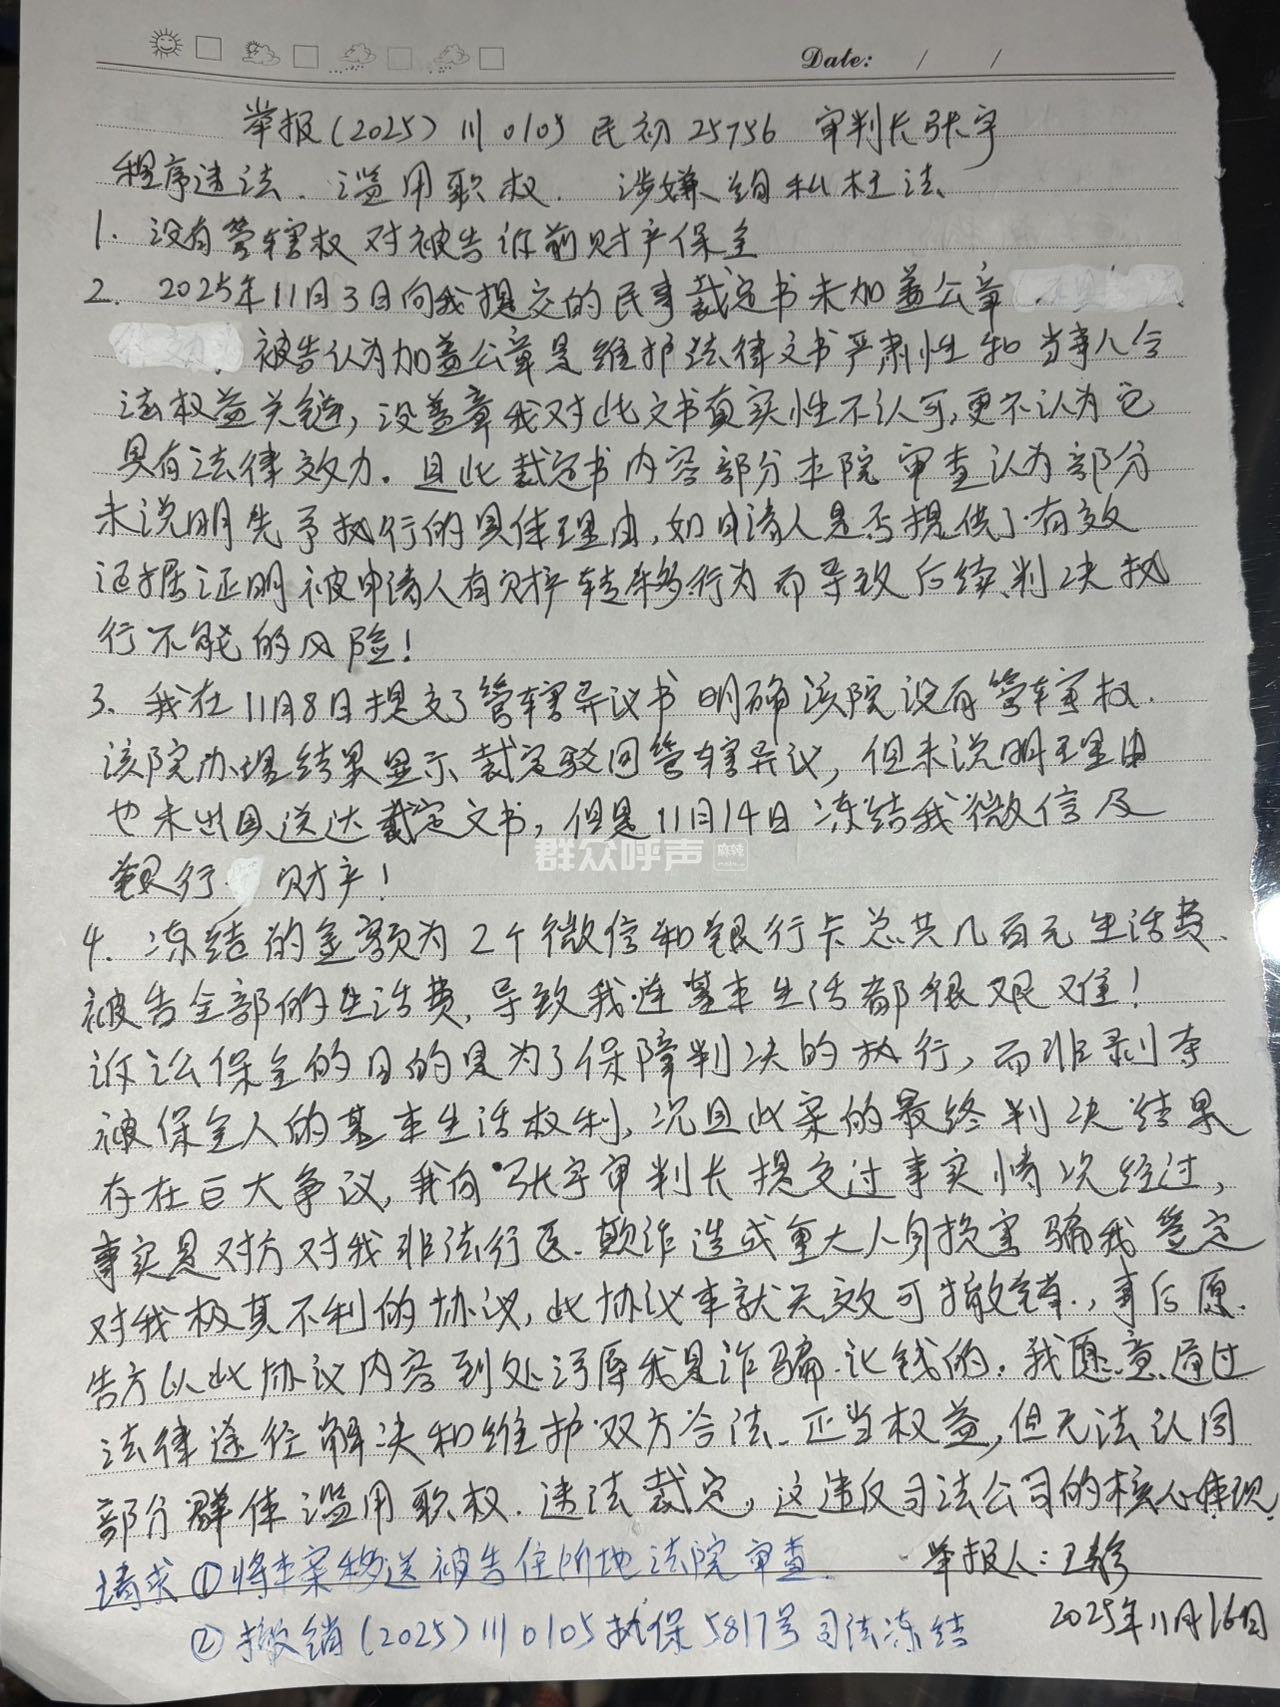 Date: / /
举报(2025)川0105民初25756 审判长张宇
程序违法.滥用职权. 涉嫌徇私枉法
1. 没有管辖权对被告诉前财产保全
2. 2025年11月3日向我提交的民事裁定书未加盖公章
被告认为加盖公章是维护法律文书严肃性和当事人合
法权益关键,没盖章我对此文书真实性不认可,更不认为它
具有法律效力。且此裁定书内容部分本院审查认为部分
未说明先予执行的具体理由,如申请人是否提供了有效
证据证明被申请人有财产转移行为而导致后续判决执
行不能的风险!
3、我在11月8日提交了管辖异议书 明确该院没有管辖权.
该院办理结果显示裁定驳回管辖异议,但未说明理由
也未出具送达裁定文书,但是11月14日冻结我微信及
银行 财产!
群众呼声 麻辣
4. 冻结的金额为2个微信和银行卡总共几百元生活费.
被告全部的生活费,导致我连基本生活都很艰难!
诉讼保全的目的是为了保障判决的执行,而非剥夺
被保全人的基本生活权利,况且此案的最终判决结果
存在巨大争议,我向张宇审判长提交过事实情况经过,
事实是对方对我非法行医.欺诈造成重大人身损害骗我签定
对我极其不利的协议,此协议本就无效可撤销.,事后原
告方以此协议内容到处污辱我是诈骗.讹钱的。我愿意通过
法律途径解决和维护双方合法.正当权益,但无法认同
部分群体滥用职权.违法裁定,这违反司法公司的核心体现.
请求①将本案移送被告住所地法院审查. 举报人:王
②撤销(2025)川0105执保5817号司法冻结 2025年11月16日